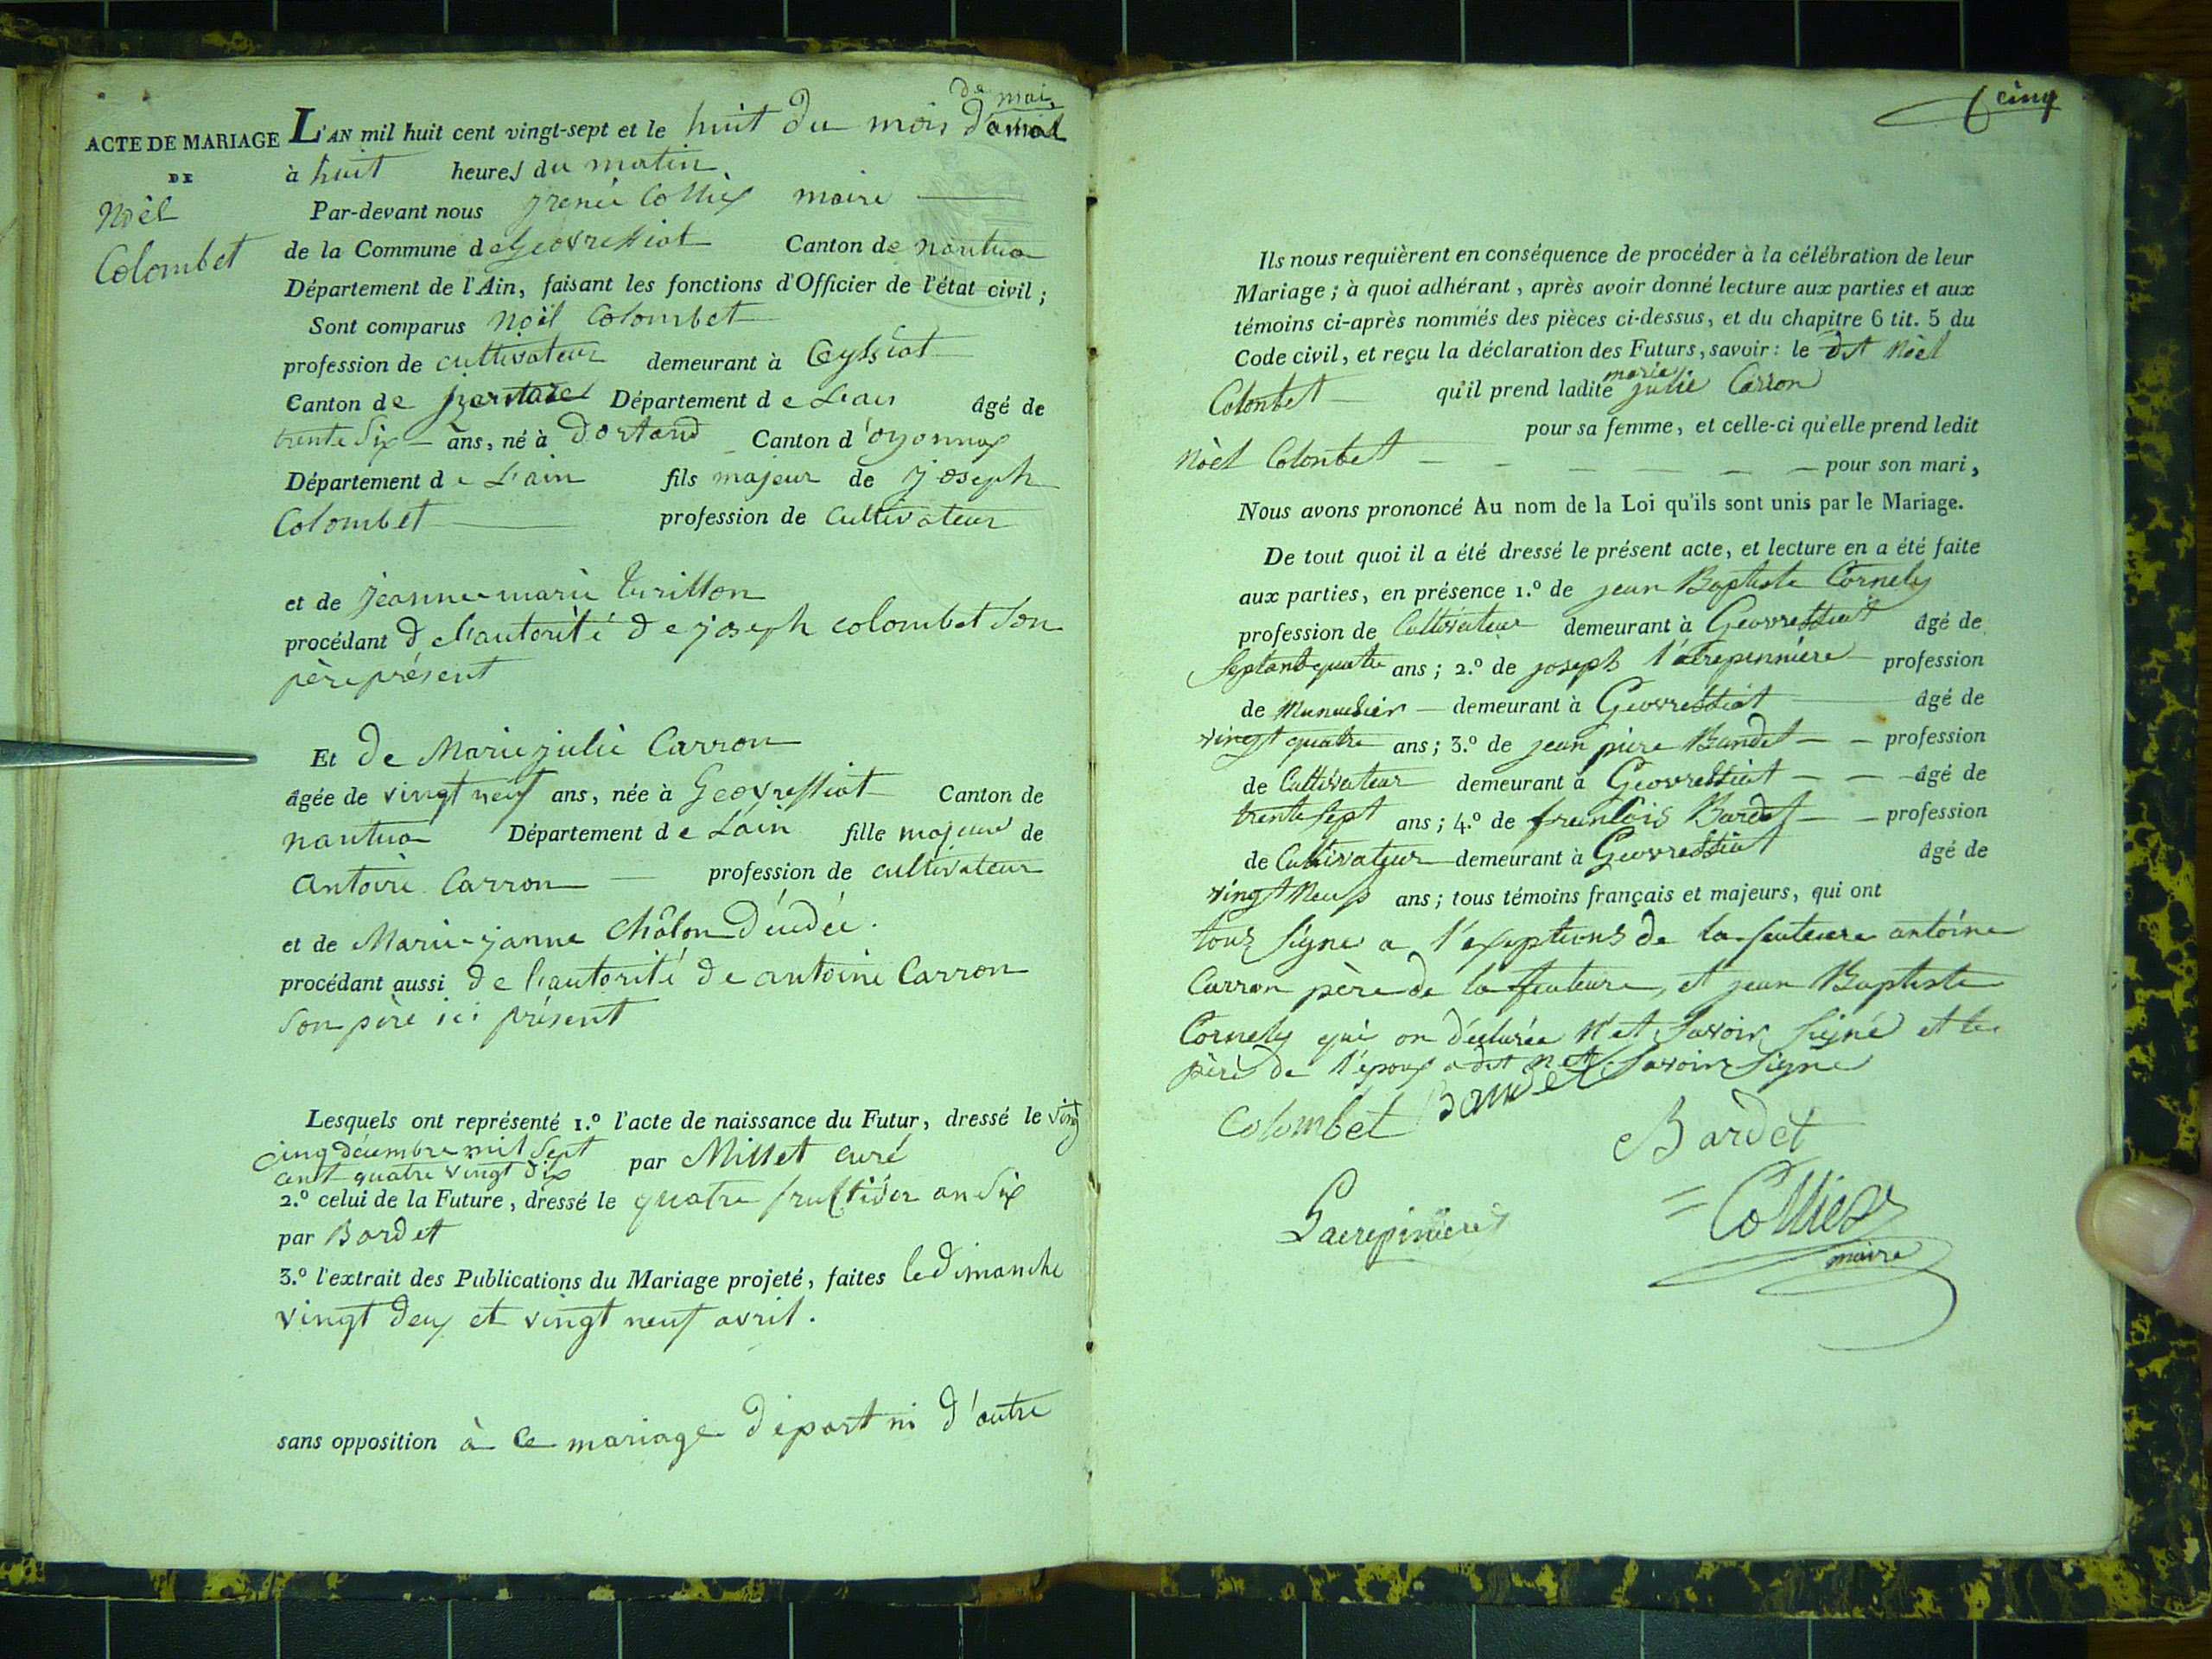 de mai
ACTE DE MARIAGE
DE
Noèl
Colombet
L'AN mil huit cent vingt-sept et le huit du mois d'avril
à huit heures du matin
Par-devant nous Colliex maire
de la Commune de Geovressiat Canton de nantua
Département de l'Ain, faisant les fonctions d'Officier de l'état civil ;
Sont comparus Noël Colombet
profession de cultivateur demeurant à Ceyssiat
Canton de Département de L'ain âgé de
trente Six ans, né à Dortand Canton d'oyonnax
Département de L'ain fils majeur de joseph
Colombet profession de Cultivateur
et de jeanne-marie
procédant de l'autorité de joseph colombet Son
père présent
Et de Marie julie Carron
âgée de vingt neuf ans, née à Geovressiat Canton de
nantua Département de L'ain fille majeure de
Antoine Carron profession de cultivateur
et de Marie-janne Châlon Décédée.
procédant aussi de l'autorité de antoine Carron
Son père ici présent
Lesquels ont représenté 1.º l'acte de naissance du Futur, dressé le vingt
cinq décembre mil Sept
cent quatre vingt dix par Millet curé
2.º celui de la Future, dressé le quatre fructidor an Six
par Bardet
3.º l'extrait des Publications du Mariage projeté, faites le dimanche
vingt deux et vingt neuf avril.
sans opposition à ce mariage de part ni d'autre
cinq
Ils nous requièrent en conséquence de procéder à la célébration de leur
Mariage ; à quoi adhérant, après avoir donné lecture aux parties et aux
témoins ci-après nommés des pièces ci-dessus, et du chapitre 6 tit. 5 du
Code civil, et reçu la déclaration des Futurs, savoir : le dit Noël
marie
Colombet qu'il prend ladite julie Carron
pour sa femme, et celle-ci qu'elle prend ledit
Noèl Colombet pour son mari,
Nous avons prononcé Au nom de la Loi qu'ils sont unis par le Mariage.
De tout quoi il a été dressé le présent acte, et lecture en a été faite
aux parties, en présence 1.º de jean Baptiste Cornely
profession de Cultivateur demeurant à Geovressiat âgé de
Septante quatre ans ; 2.º de joseph profession
de demeurant à Geovressiat âgé de
vingt quatre ans ; 3.º de jean piere Baudet profession
de Cultivateur demeurant à Geovressiat âgé de
trente Sept ans ; 4.º de franCois Bardet profession
de Cultivateur demeurant à Geovressiat âgé de
vingt Neuf ans ; tous témoins français et majeurs, qui ont
tous Signe a l'exseptions de la feuteure antoine
Carron père de la feuteure, et jean Baptiste
Cornely qui on déclarée n'et Savoir Signé et le
père de l'époux a dit net Savoir Signe
Colombet Baudet
Bardet
Colliex
maire